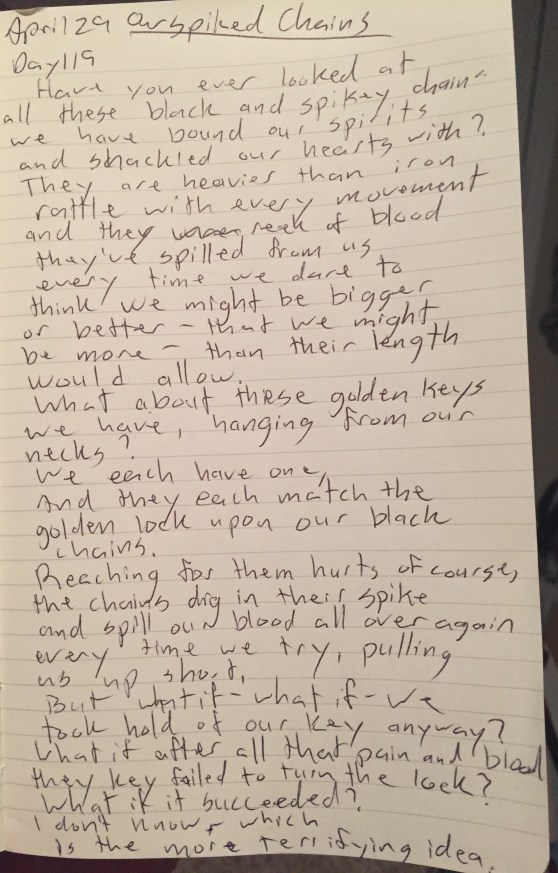 April 29 Our spiked Chains
Day 119
Have you ever looked at
all these black and spikey chains
we have bound our spirits
and shackled our hearts with?
They are heavier than iron
rattle with every movement
and they reek of blood
they've spilled from us
every time we dare to
think we might be bigger
or better - that we might
be more - than their length
would allow.
What about these golden keys
we have, hanging from our
necks?
We each have one,
And they each match the
golden lock upon our black
chains.
Reaching for them hurts of course,
the chains dig in their spike
and spill our blood all over again
every time we try, pulling
us up short.
But what if - what if - we
took hold of our key anyway?
What if after all that pain and blood
they key failed to turn the lock?
What if it succeeded?
I don't know which
is the more terrifying idea.